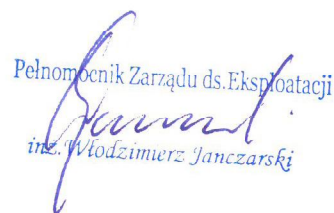 Pełnomocnik Zarządu ds.Eksploatacji
inż. Włodzimierz Janczarski